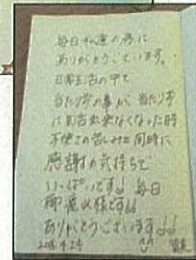 毎日私達の為に
ありがとうございます。
日常生活の中で
当たり前の事が、当たり前
に出来なくなった時
不便さの苦しみと同時に
感謝の気持ちで
いっぱいです 毎日
御疲れ様です
ありがとうございます